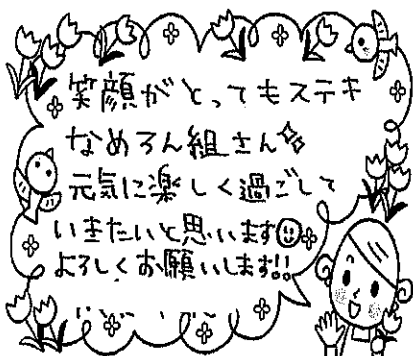 笑顔がとってもステキ
なめろん組さん
元気に楽しく過ごして
いきたいと思います
よろしくお願いします!!